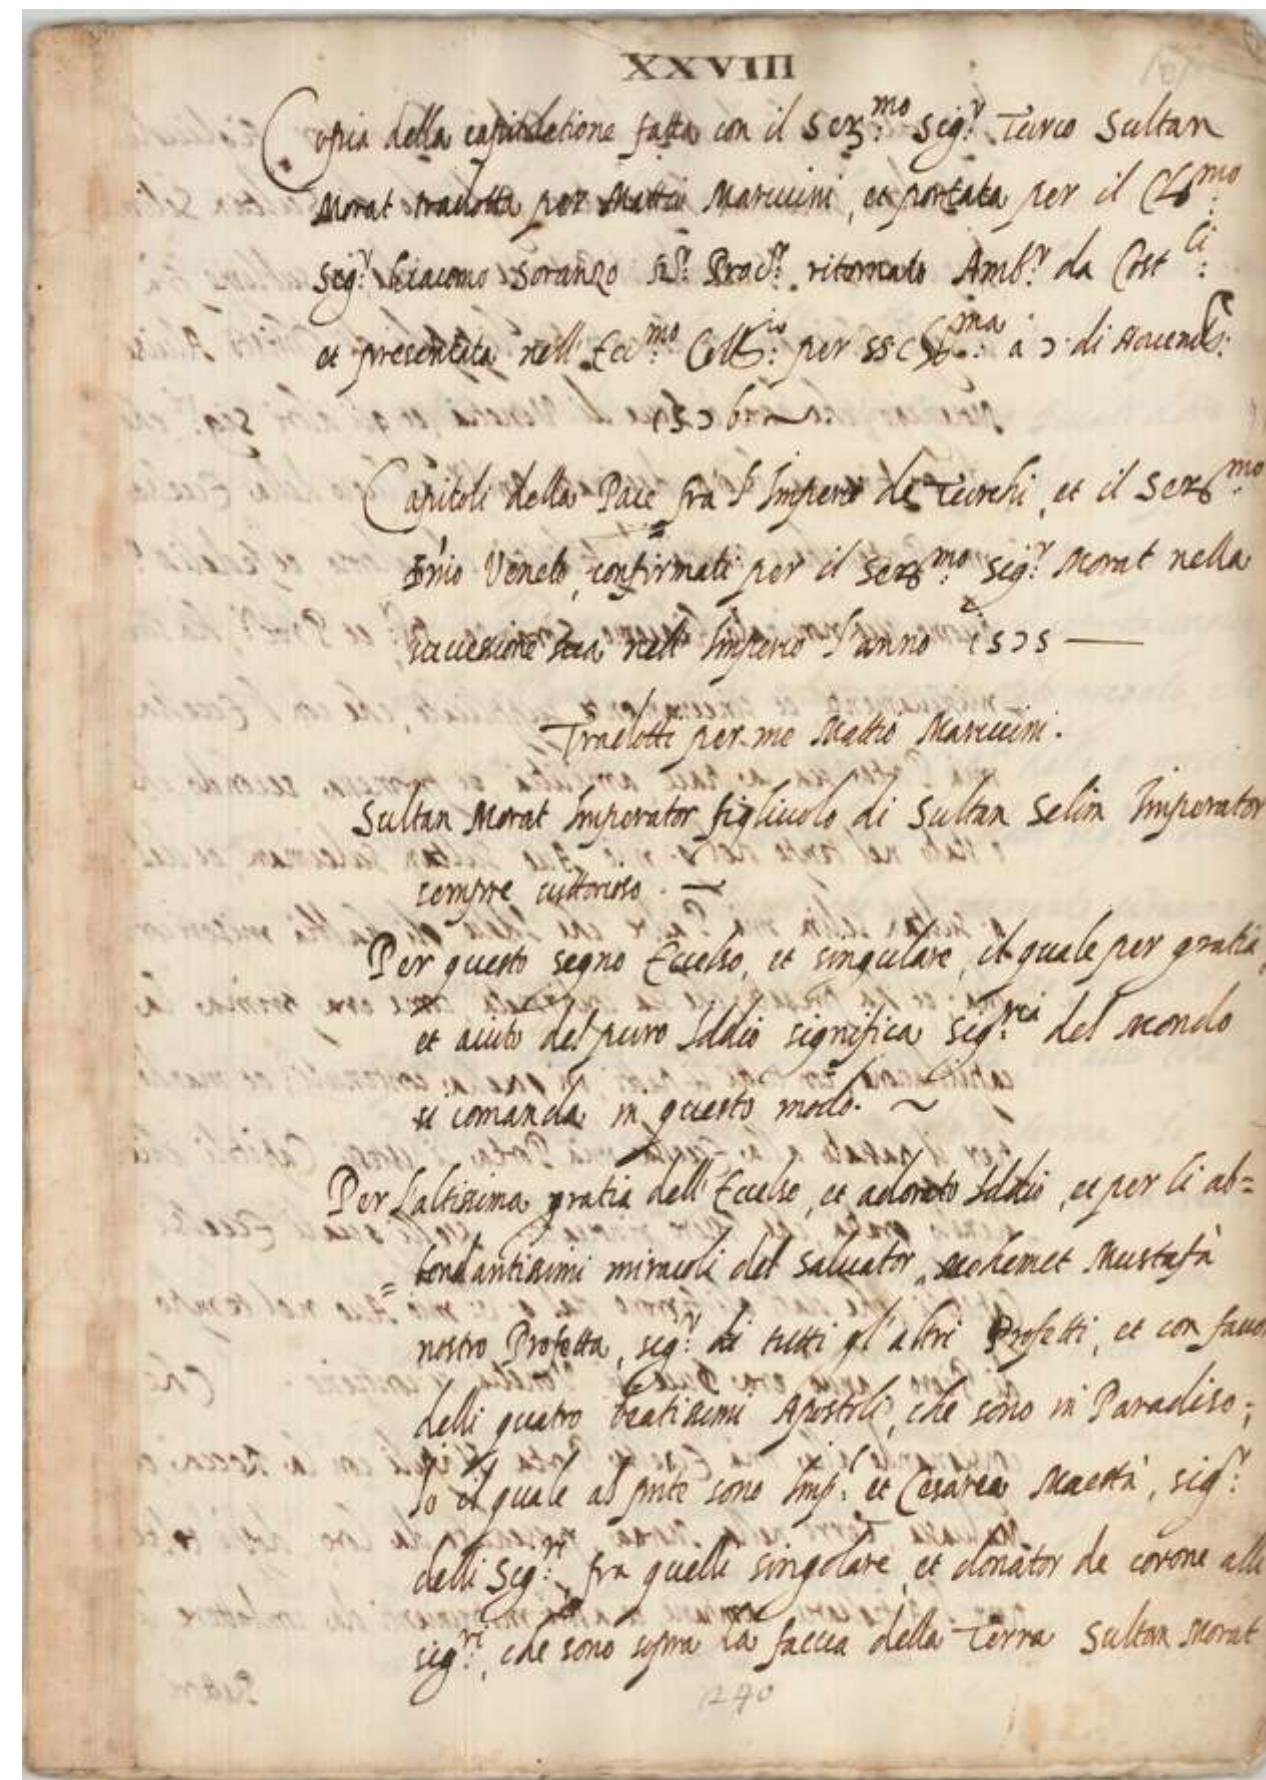 XXVIII
Copia della capitulatione fatta con il Ser.mo Sig.r Turco Sultan
Morat tradotta per Mattio Maruccini, et portata per il Cl.mo
Sig.r Giacomo Soranzo K.r Proc.r ritornato Amb.r da Cost.li
et presentata nell' Ecc.mo Coll.io per SS Cl.ma a di
1576
Capitoli della Pace fra l'Imperio de Turchi, et il Ser.mo
D'nio Veneto, confirmati per il Ser.mo Sig.r Morat nella
successione sua nell' Imperio l'anno 1575
Tradotti per me Mattio Maruccini.
Sultan Morat Imperator figliuolo di Sultan Selin Imperator
sempre vittorioso.
Per questo segno Eccelso, et singulare, il quale per gratia,
et aiuto del puro Iddio significa Sig.ria del Mondo
si comanda in questo modo.
Per l'altissima gratia dell' Eccelso, et adorato Iddio, et per li ab=
=bondantissimi miracoli del Salvator, Mohemet Mustafà
nostro Profetta, sig.r di tutti gl'altri Profetti, et con favor
delli quatro beatissimi Apostoli, che sono in Paradiso;
Io il quale al pnte sono Imp.r et Cesarea Maestà, sig.r
delli Sig.ri fra quelli singolare, et donator de corone alli
sig.ri, che sono sopra la faccia della Terra Sultan Morat
240